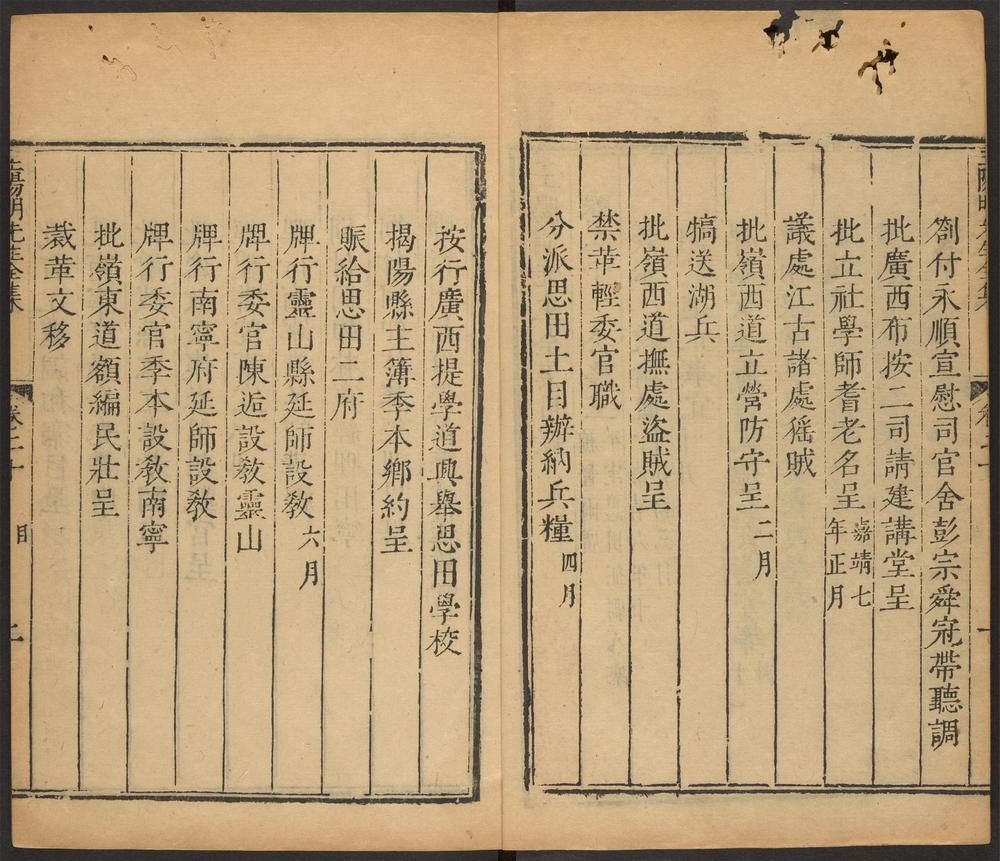 劄付永順宣慰司官舍彭宗舜冠帶聽調
批廣西布按二司請建講堂呈
批立社學師耆老名呈 嘉靖七年正月
議處江古諸處徭賊
批嶺西道立營防守呈 二月
犒送湖兵
批嶺西道撫處盜賊呈
禁革輕委官職
分派思田土目辦納兵糧 四月
按行廣西提學道興舉思田學校
揭陽縣主簿季本鄉約呈
賑給思田二府
牌行靈山縣延師設敎 六月
牌行委官陳逅設敎靈山
牌行南寧府延師設敎
牌行委官季本設敎南寧
批嶺東道額編民壯呈
裁革文移
王陽明先生全集 卷二十 目 二